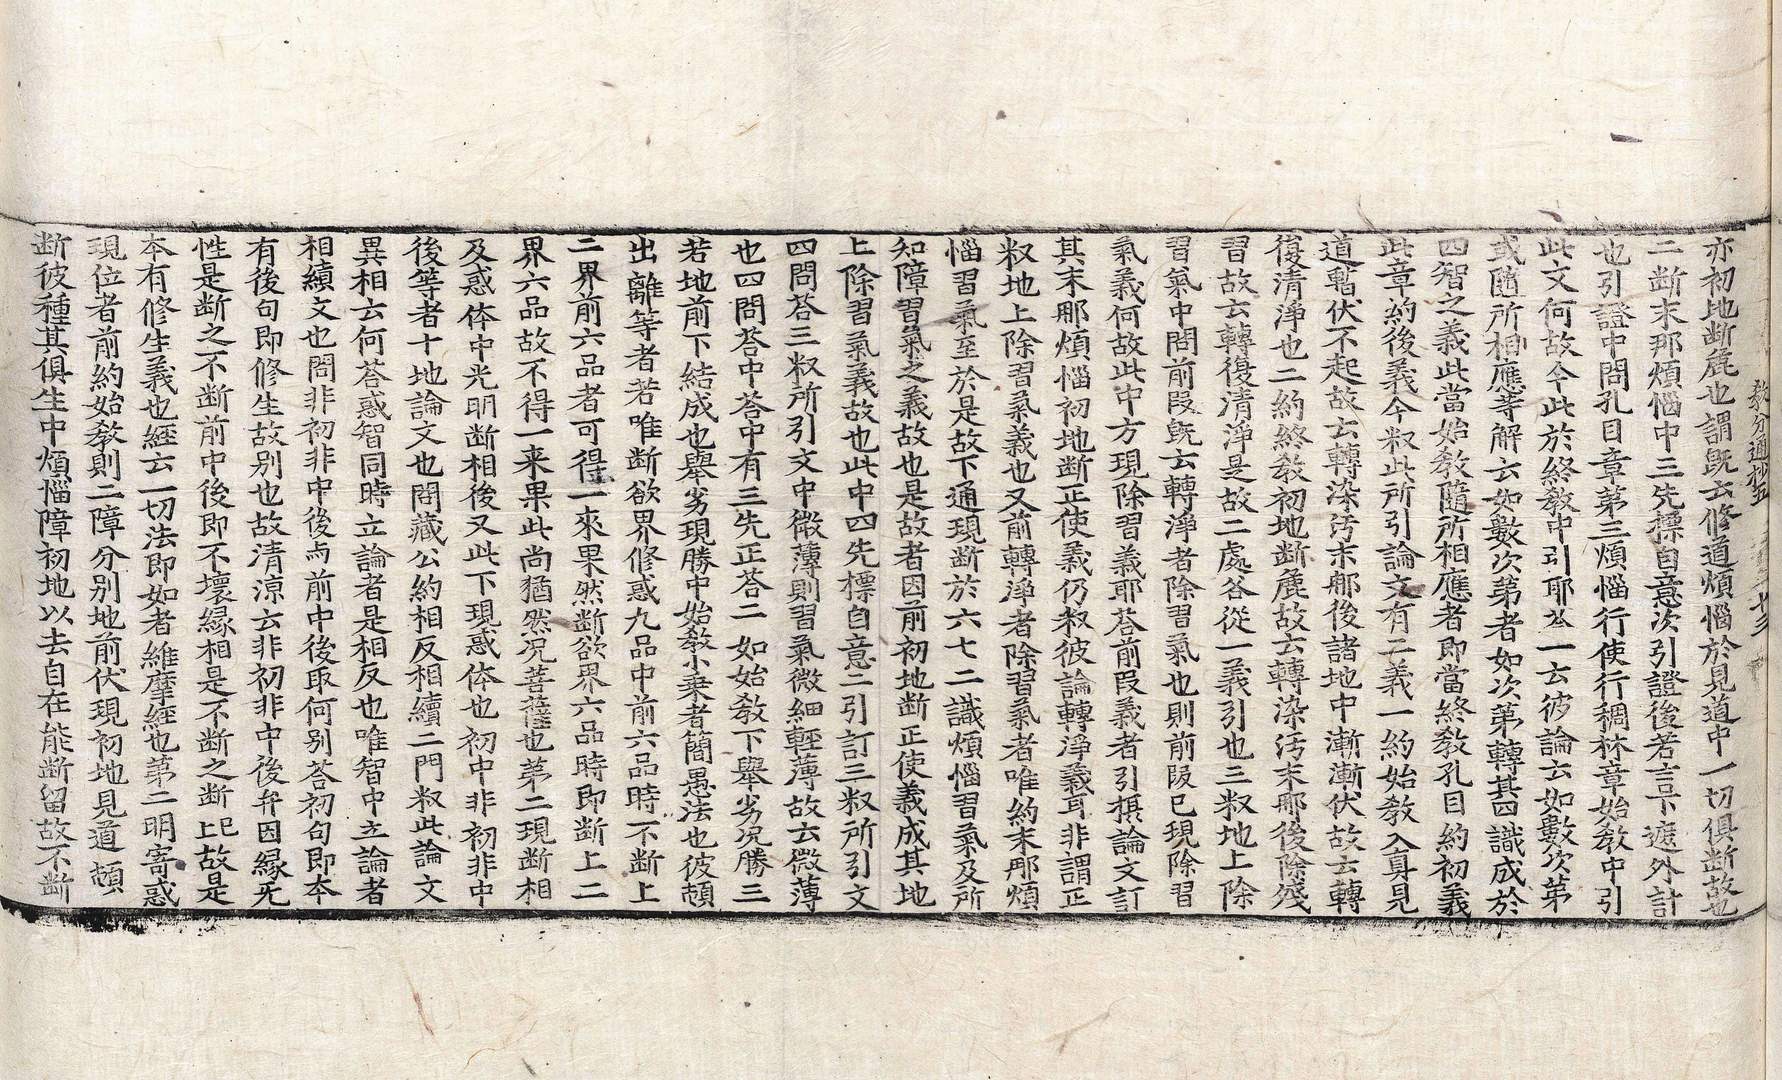 亦初地断麁也謂旣云修道煩惱於見道中一切俱断故也
二断末那煩惱中三先標自意次引證後若言下遮外計
也引證中問孔目章第三煩惱行使行稠林章始教中引
此文何故今此於終教中引耶荅一云彼論云如數次第
或隨所相應等解云如數次第者如次第轉其四識成於
四智之義此當始教隨所相應者即當終教孔目約初義
此章約後義今叙此所引論文有二義一約始教入真見
道暫伏不起故云轉染污末那後諸地中漸漸伏故云轉
復清淨也二約終教初地断麁故云轉染污末那後除殘
習故云轉復清淨是故二處各從一義引也三叙地上除
習氣中問前叚旣云轉淨者除習氣也則前叚已現除習
氣義何故此中方現除習義耶荅前叚義者引摂論文訂
其末那煩惱初地断正使義仍叙彼論轉淨義耳非謂正
叙地上除習氣義也又前轉淨者除習氣者唯約末那煩
惱習氣至於是故下通現断於六七二識煩惱習氣及所
知障習氣之義故也是故者因前初地断正使義成其地
上除習氣義故也此中四先標自意二引訂三叙所引文
四問荅三叙所引文中微薄則習氣微細輕薄故云微薄
也四問荅中荅中有三先正荅二如始教下舉劣况勝三
若地前下結成也舉劣現勝中始教小乗者簡愚法也彼頓
出離等者若唯断欲界修惑九品中前六品時不断上
二界前六品者可得一來果然断欲界六品時即断上二
界六品故不得一来果此尚猶然况菩薩也第二現断相
及惑体中光明断相後又此下現惑体也初中非初非中
後等者十地論文也問藏公約相反相續二門叙此論文
異相云何荅惑智同時立論者是相反也唯智中立論者
相續文也問非初非中後与前中後取何别荅初句即本
有後句即修生故别也故清涼云非初非中後弁因縁无
性是断之不断前中後即不壞縁相是不断之断上故是
本有修生義也經云一切法即如者維摩經也第二明寄惑
現位者前約始教則二障分别地前伏現初地見道頓
断彼種其俱生中煩惱障初地以去自在能断留故不断
教分通抄五